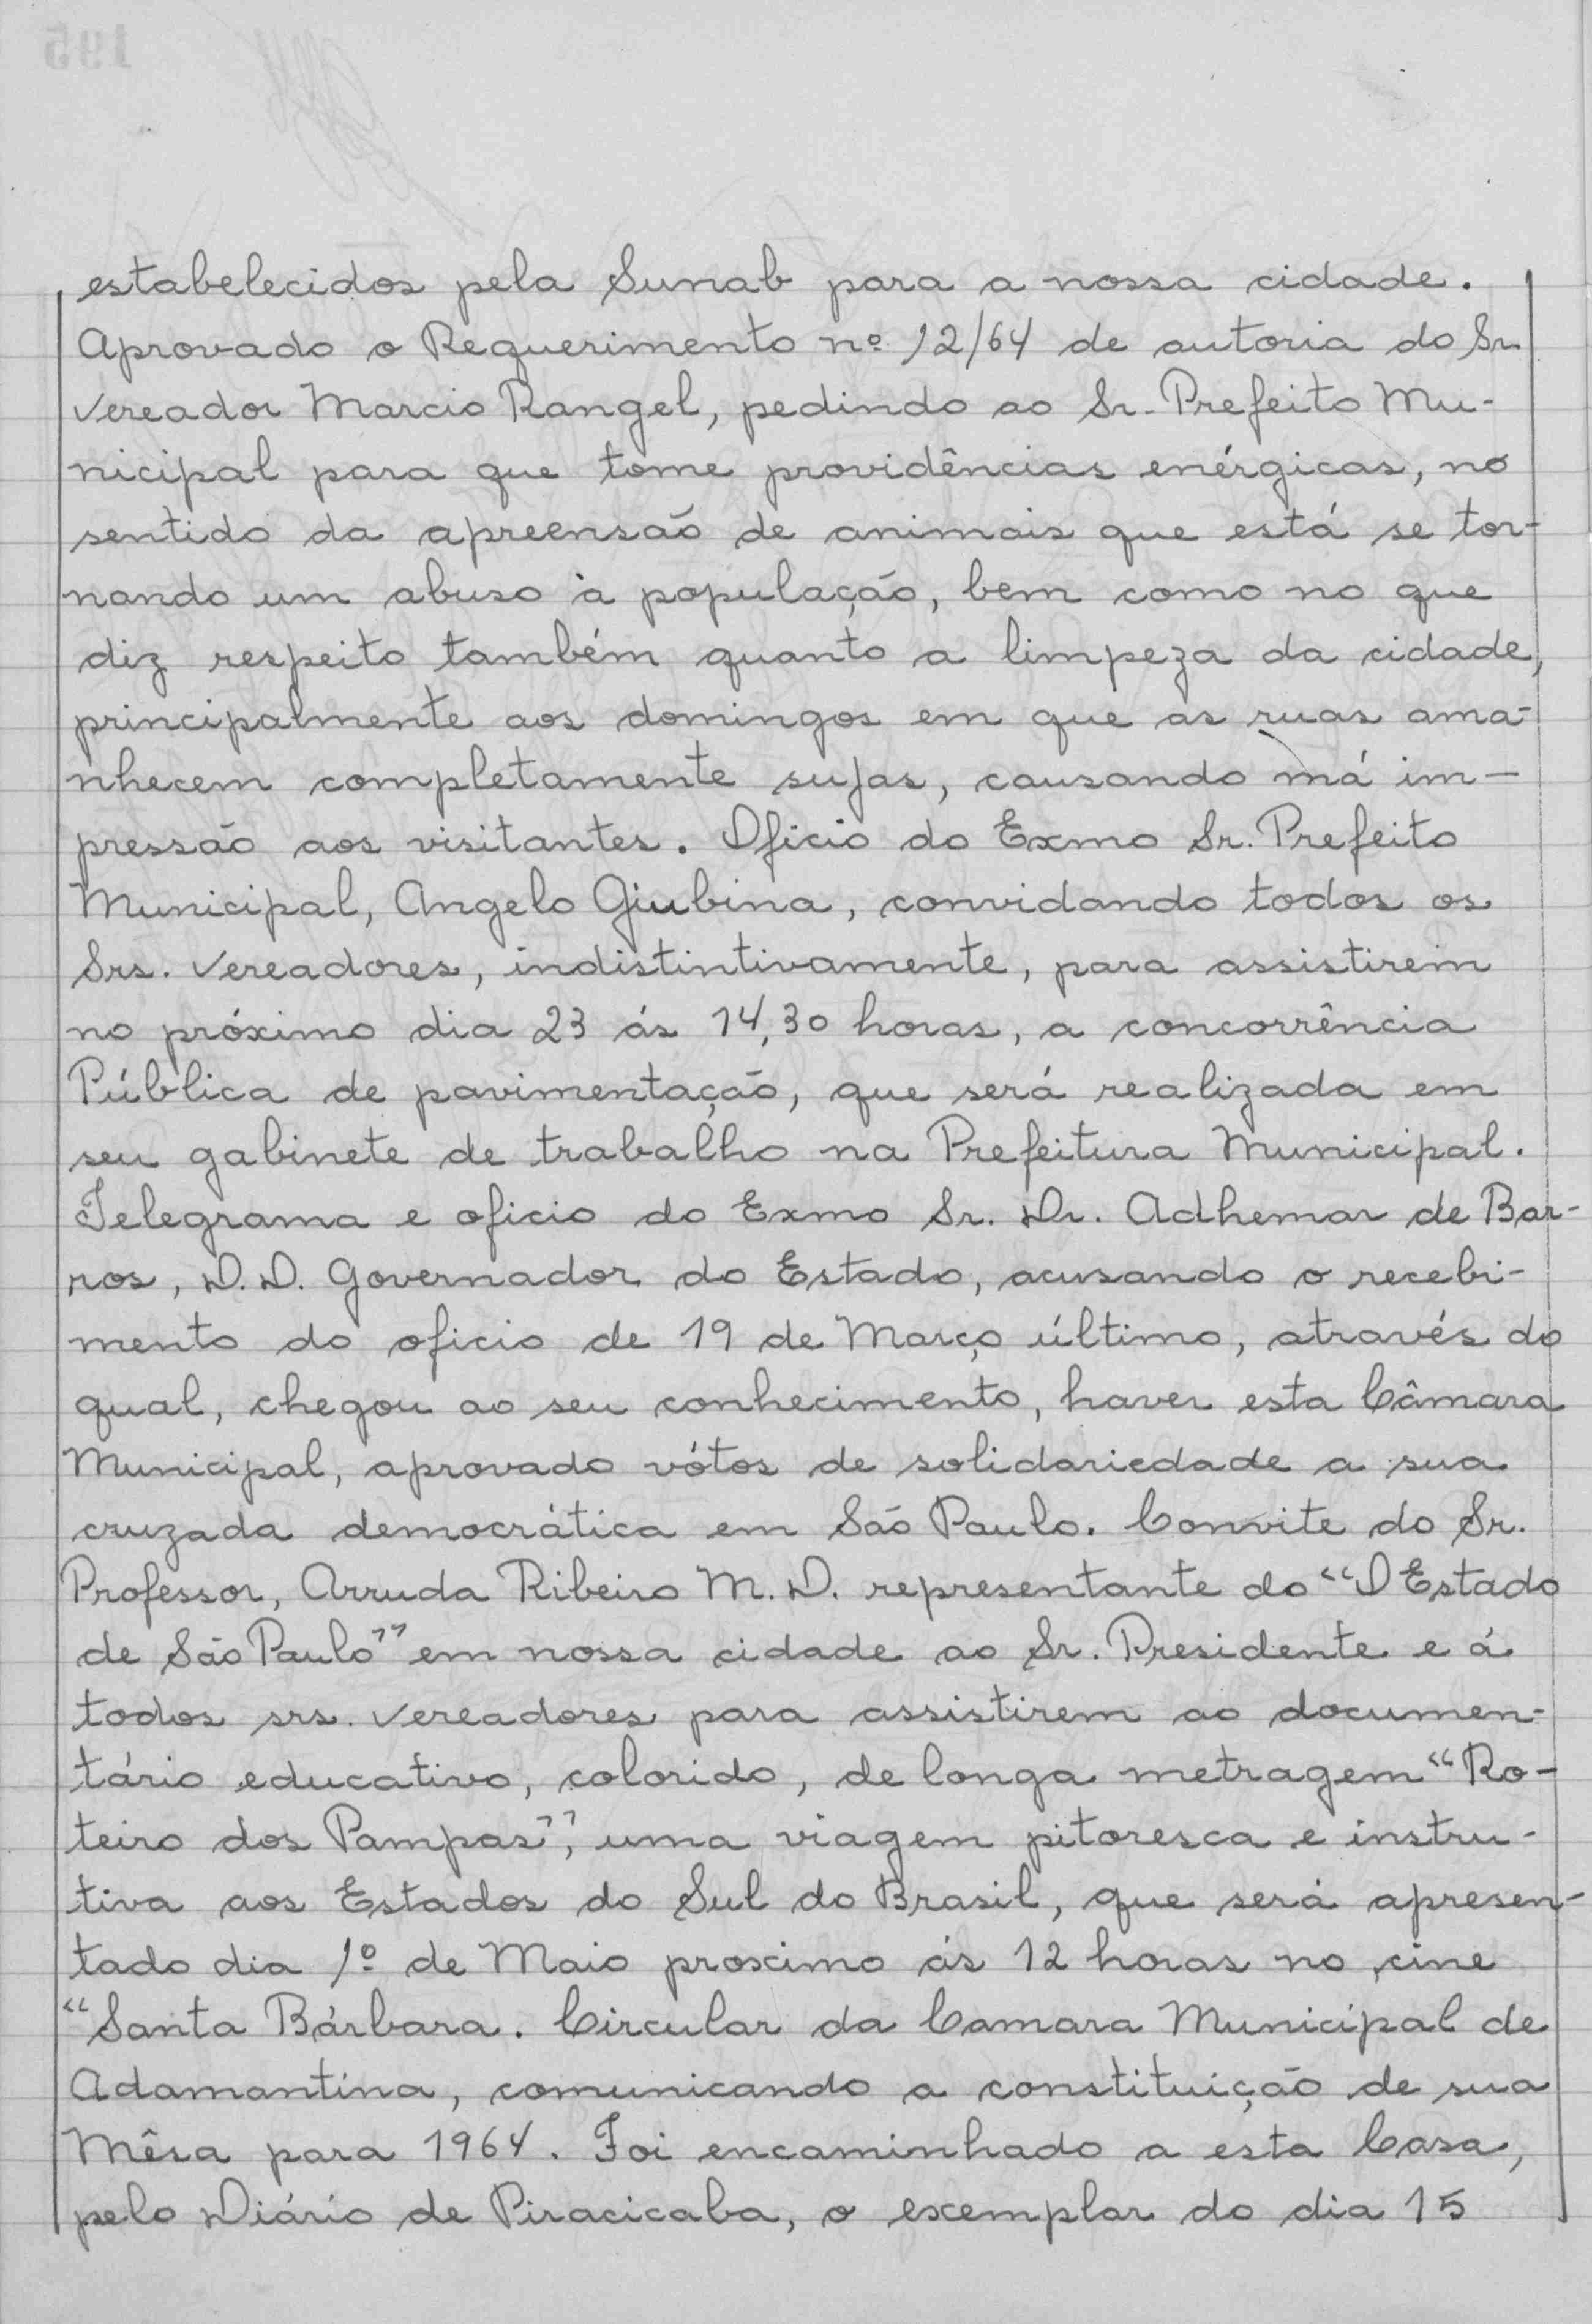 estabelecidos pela Sunab para a nossa cidade.
Aprovado o Requerimento nº 12/64 de autoria do Sr
Vereador Marcio Rangel, pedindo ao Sr. Prefeito Mu-
nicipal para que tome providências enérgicas, no
sentido da apreensão de animais que está se tor-
nando um abuso à população, bem como no que
diz respeito também quanto a limpeza da cidade,
principalmente aos domingos em que as ruas ama-
nhecem completamente sujas, causando má im-
pressão aos visitantes. Oficio do Exmo Sr. Prefeito
Municipal, Angelo Giubina, convidando todos os
Srs. Vereadores, indistintivamente, para assistirem
no próximo dia 23 ás 14,30 horas, a concorrência
Pública de pavimentação, que será realizada em
seu gabinete de trabalho na Prefeitura Municipal.
Telegrama e oficio do Exmo Sr. Dr. Adhemar de Bar-
ros, D.D. Governador do Estado, acusando o recebi-
mento do oficio de 19 de Março último, através do
qual, chegou ao seu conhecimento, haver esta Câmara
Municipal, aprovado vótos de solidariedade a sua
cruzada democrática em São Paulo. Convite do Sr.
Professor, Arruda Ribeiro M. D. representante do "O Estado
de São Paulo" em nossa cidade ao Sr. Presidente e á
todos srs. vereadores para assistirem ao documen-
tário educativo, colorido, de longa metragem "Ro-
teiro dos Pampas", uma viagem pitoresca e instru-
tiva aos Estados do Sul do Brasil, que será apresen-
tado dia 1º de Maio proximo ás 12 horas no cine
"Santa Bárbara. Circular da Camara Municipal de
Adamantina, comunicando a constituição de sua
Mêsa para 1964. Foi encaminhado a esta Casa,
pelo Diário de Piracicaba, o exemplar do dia 15